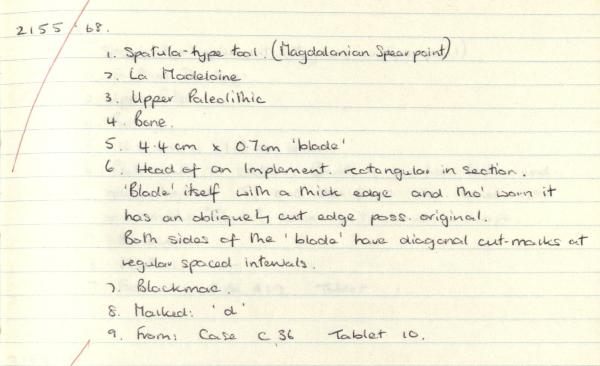 2155.68.
1. Spatula-type tool. (Magdalanian Spear point)
2. La Madelaine
3. Upper Paleolithic
4. Bone.
5. 4.4cm x 0.7cm 'blade'
6. Head of an Implement. rectangular in section.
'Blade' itself with a thick edge and tho' worn it
has an obliquely cut edge poss. original.
Both sides of the 'blade' have diagonal cut-marks at
regular spaced intervals.
7. Blackmore.
8. Marked: 'd'
9. From: Case C.36 Tablet 10.